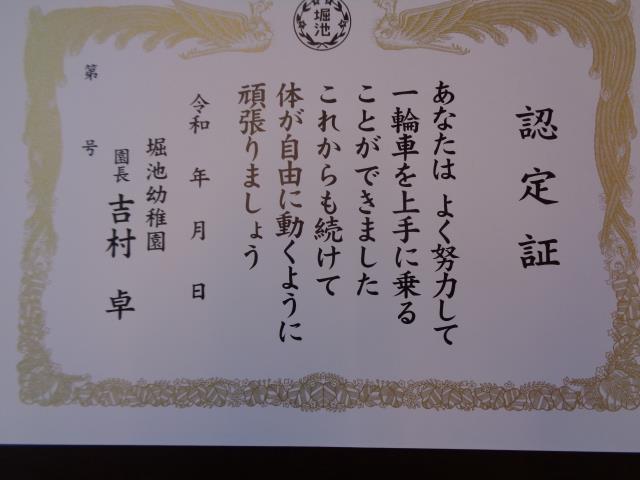 堀池
認定証
あなたは よく努力して
一輪車を上手に乗る
ことができました
これからも続けて
体が自由に動くように
頑張りましょう
令和 年 月 日
堀池幼稚園
園長 吉村 卓
第 号